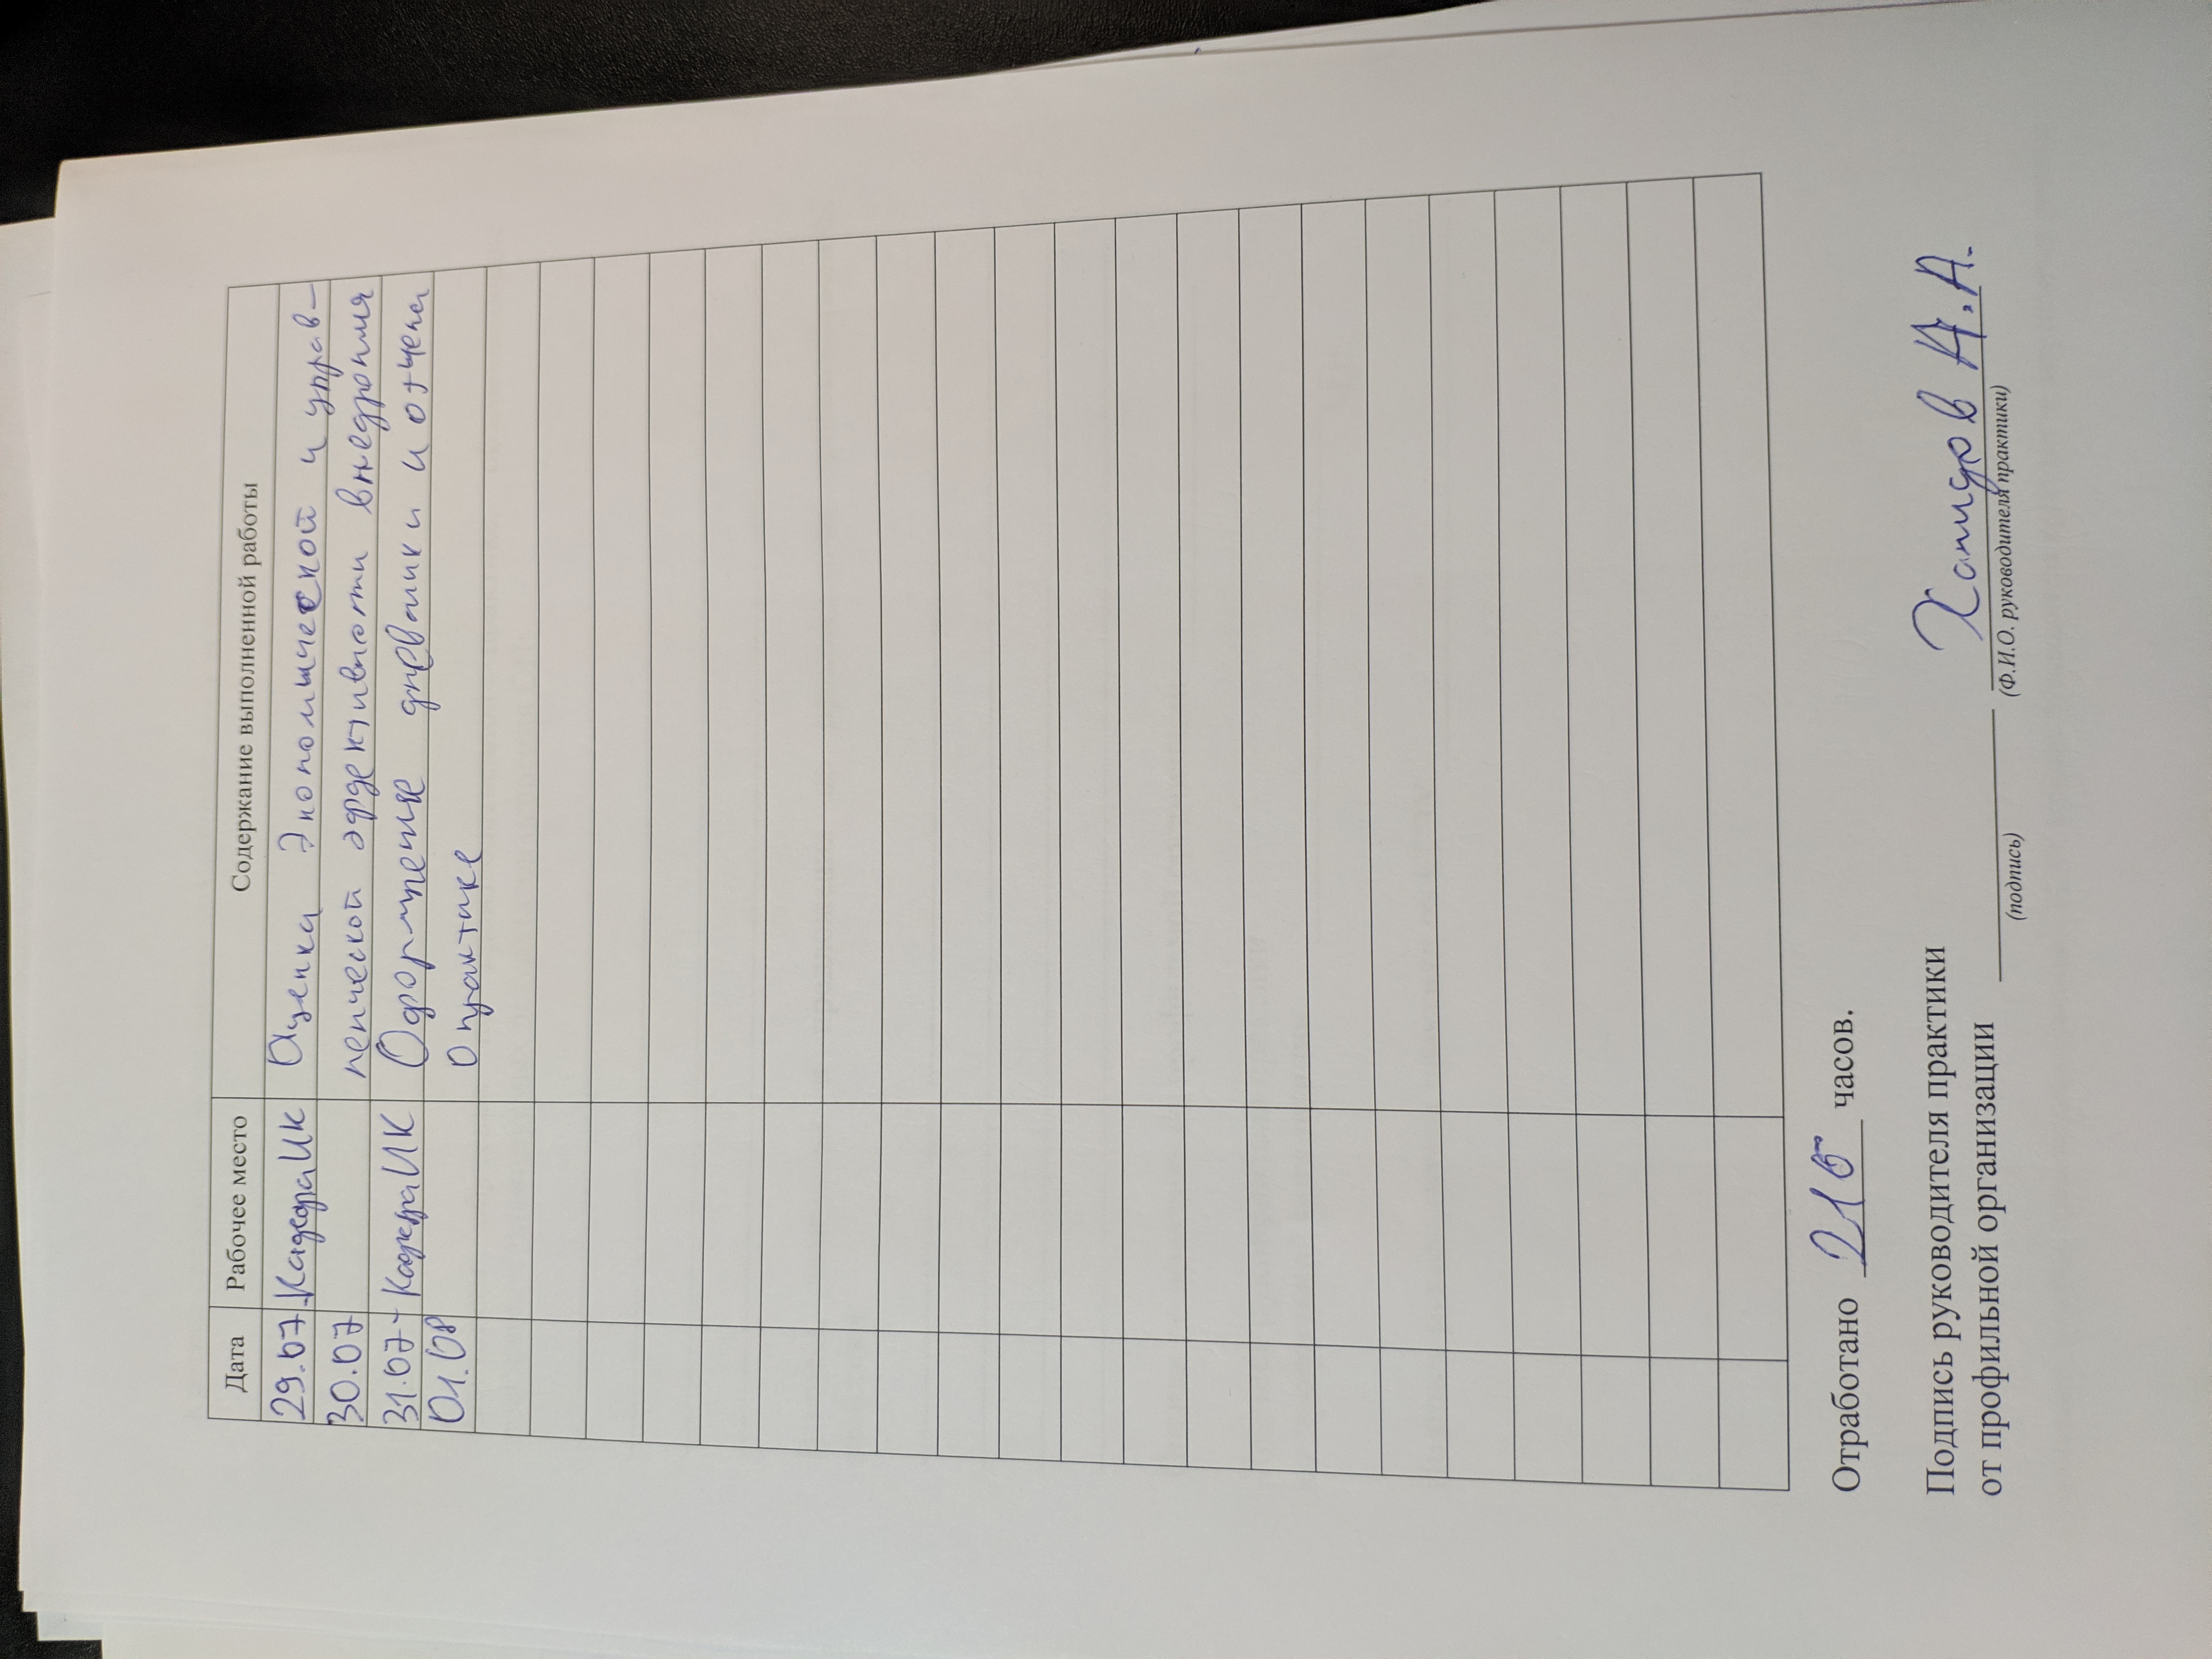 Дата Рабочее место Содержание выполненной работы
29.07 Кафедра ИК Оценка Экономической и управ-
30.07 ленческой эффективности внедрения
31.07- Кафедра ИК Оформление дневники и отчета
01.08 о практике
Отработано 216 часов.
Подпись руководителя практики
от профильной организации Хамидов А.А.
(подпись) (Ф.И.О. руководителя практики)